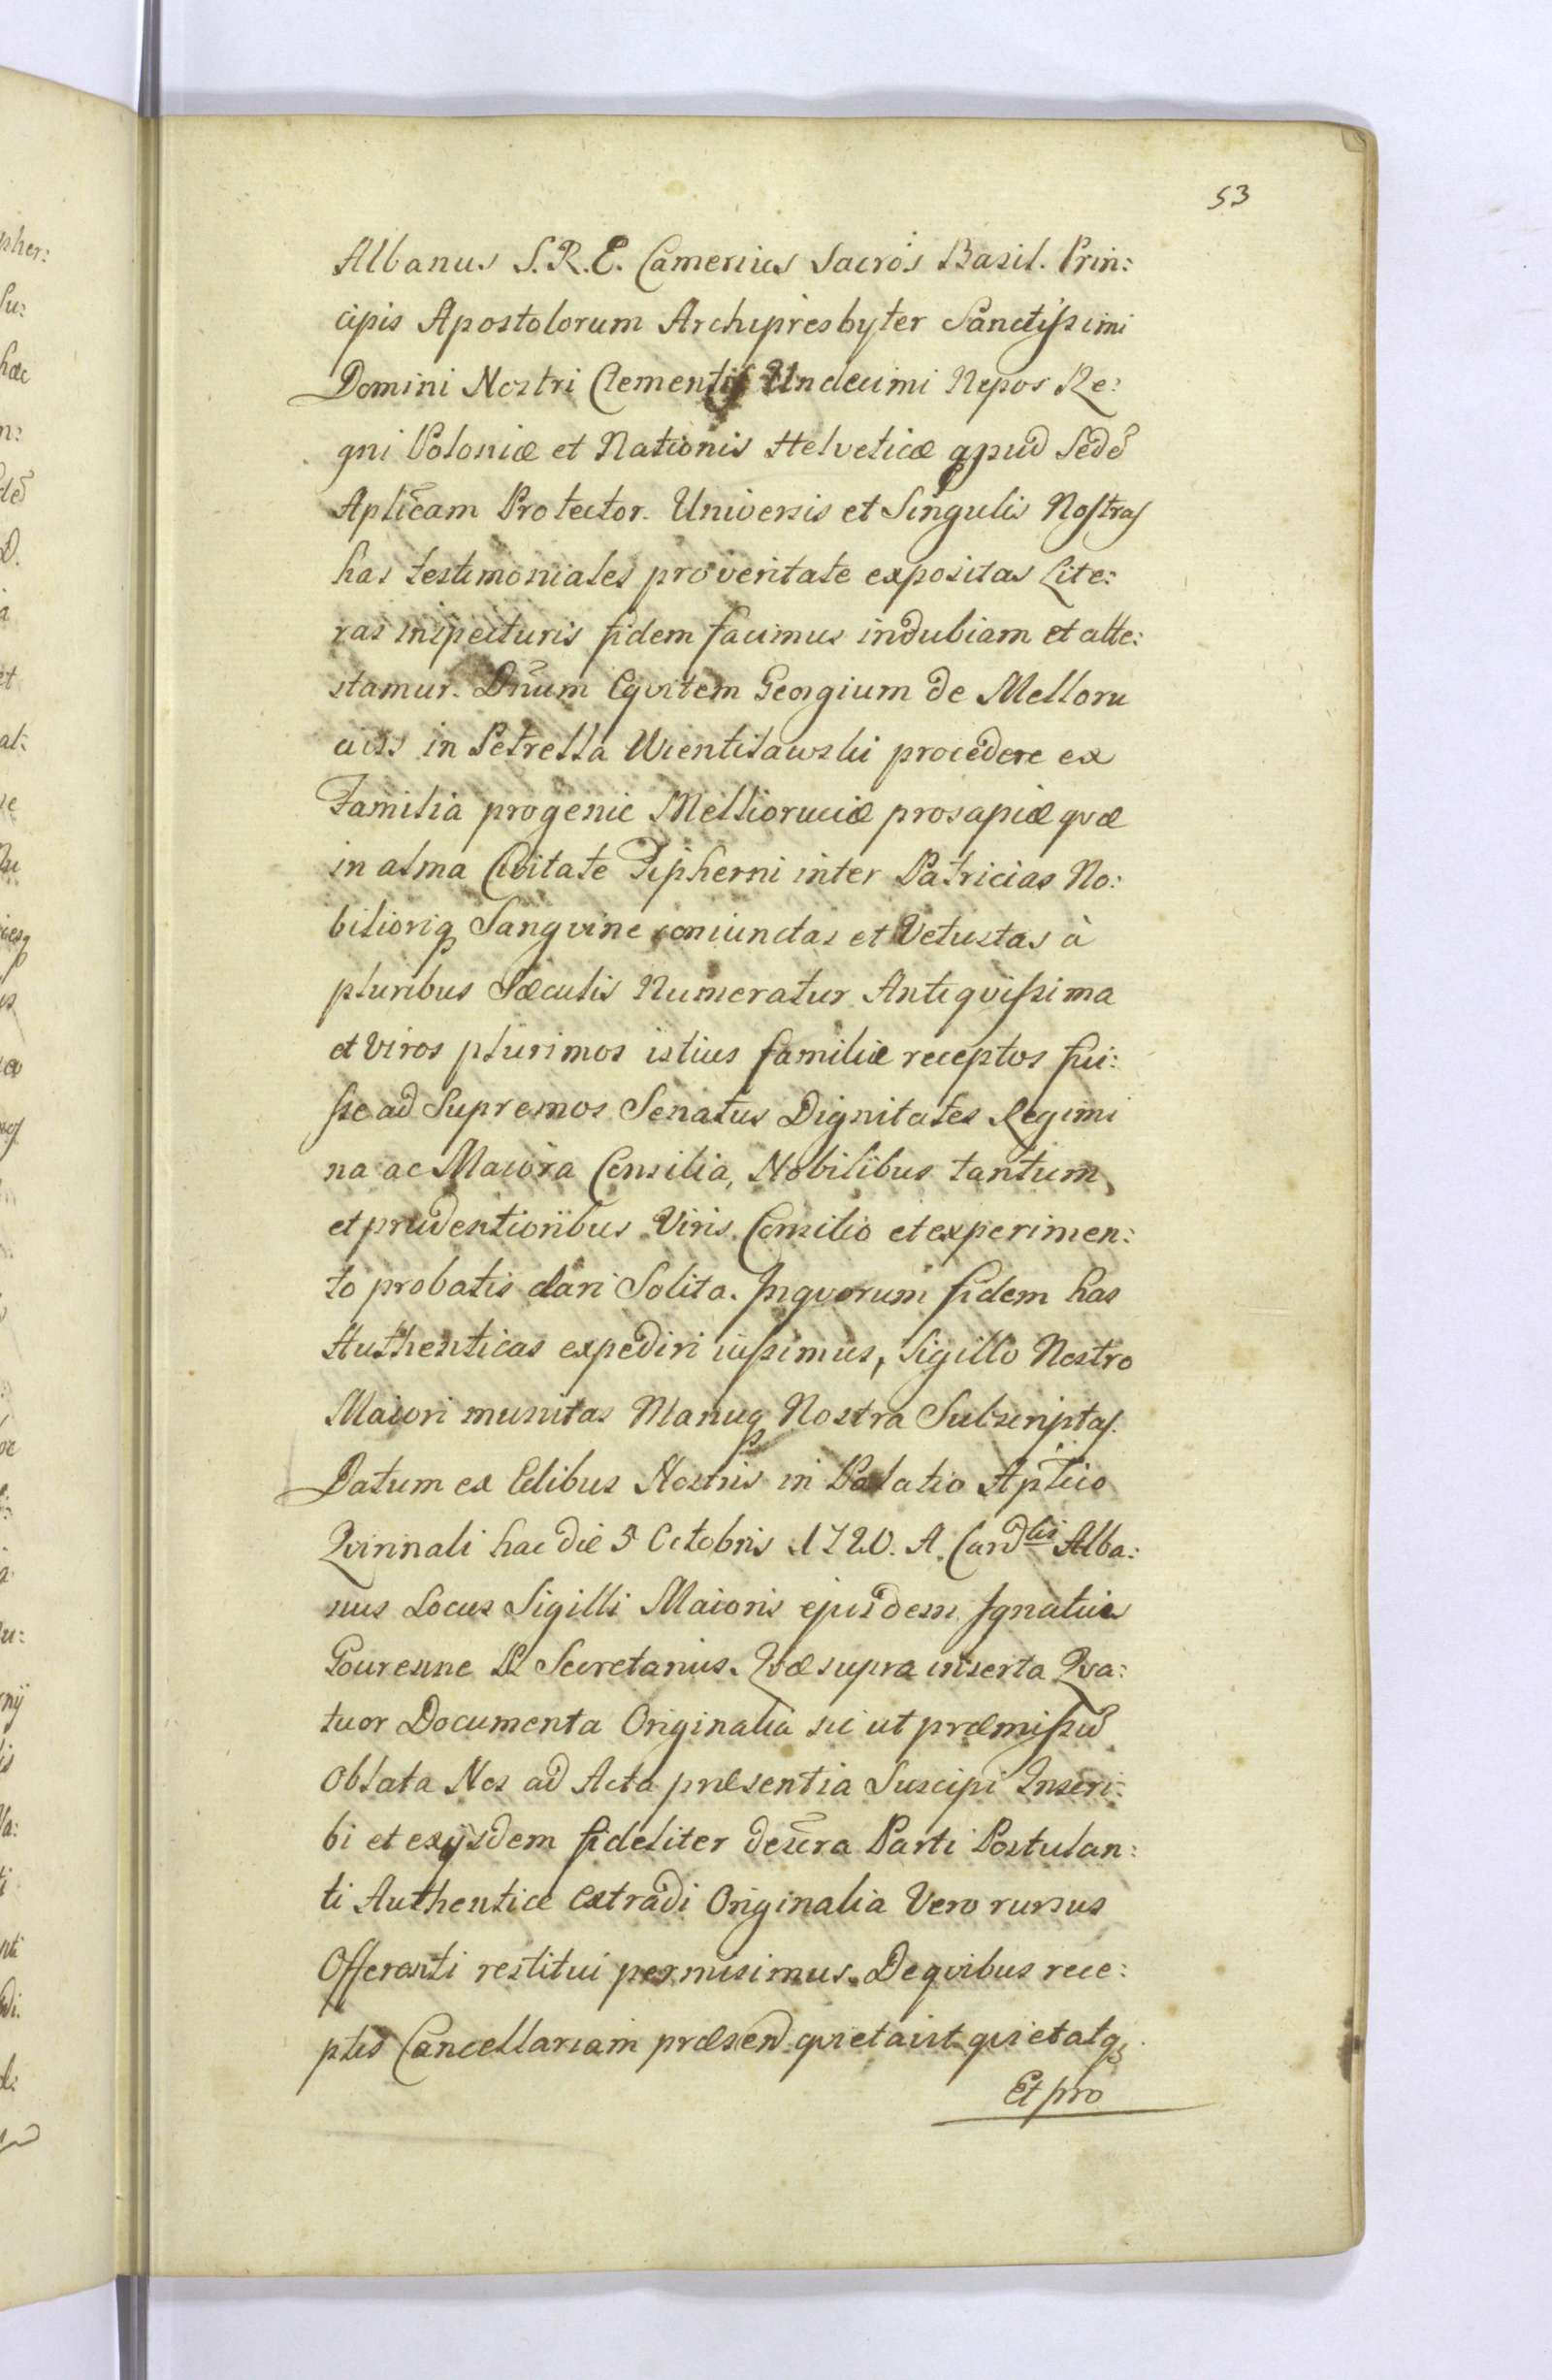 53
Albanus S.R.E. Camerius Sacros Basil. Prin:
cipis Apostolorum Archipresbyter Sanctissimi
Domini Nostri Clementis Undecimi Nepos Re:
gni Poloniæ et Nationis Helveticæ apud Sedē
Aplīcam Protector. Universis et Singulis Nostras
has testimoniales pro veritate expositas Lite:
ras inspecturis fidem facimus indubiam et atte:
stamur. Dnūm Eqvitem Georgium de Melloru
ciis in Petrella Wientilawski procedere ex
Familia progenie Mellioruciæ prosapiæ qvæ
in alma Civitate Tipherni inter Patricias No:
bilioriq Sangvine coniunctas et Vetustas à
pluribus Sæculis Numeratur Antiqvissima
et viros plurimos istius familiæ receptos fui:
sse ad Supremos Senatus Dignitates Regimi
na ac Maiora Consilia, Nobilibus tantum
et prudentioribus Viris Consilio et experimen:
to probatis dari Solita. Inqvorum fidem has
Authenticas expediri iussimus, Sigillo Nostro
Maiori munitas Manuq Nostra Subscriptas.
Datum ex Edibus Nostris in Palatio Aptlico
Qvirinali hac die 5 Octobris 1720. A. Cardlis Alba:
nus Locus Sigilli Maioris ejusdem Ignatius
Gourenne Secretarius. Qvæ supra inserta Qva:
tuor Documenta Originalia sic ut præmissū
Oblata Nos ad Acta præsentia Suscipi Inscri:
bi et exijsdem fideliter descra Parti Postulan:
ti Authentice extradi Originalia Vero rursus
Offerenti restitui permisimus. De qvibus rece:
ptis Cancellariam præsen qvietavit qvietatq
Et pro